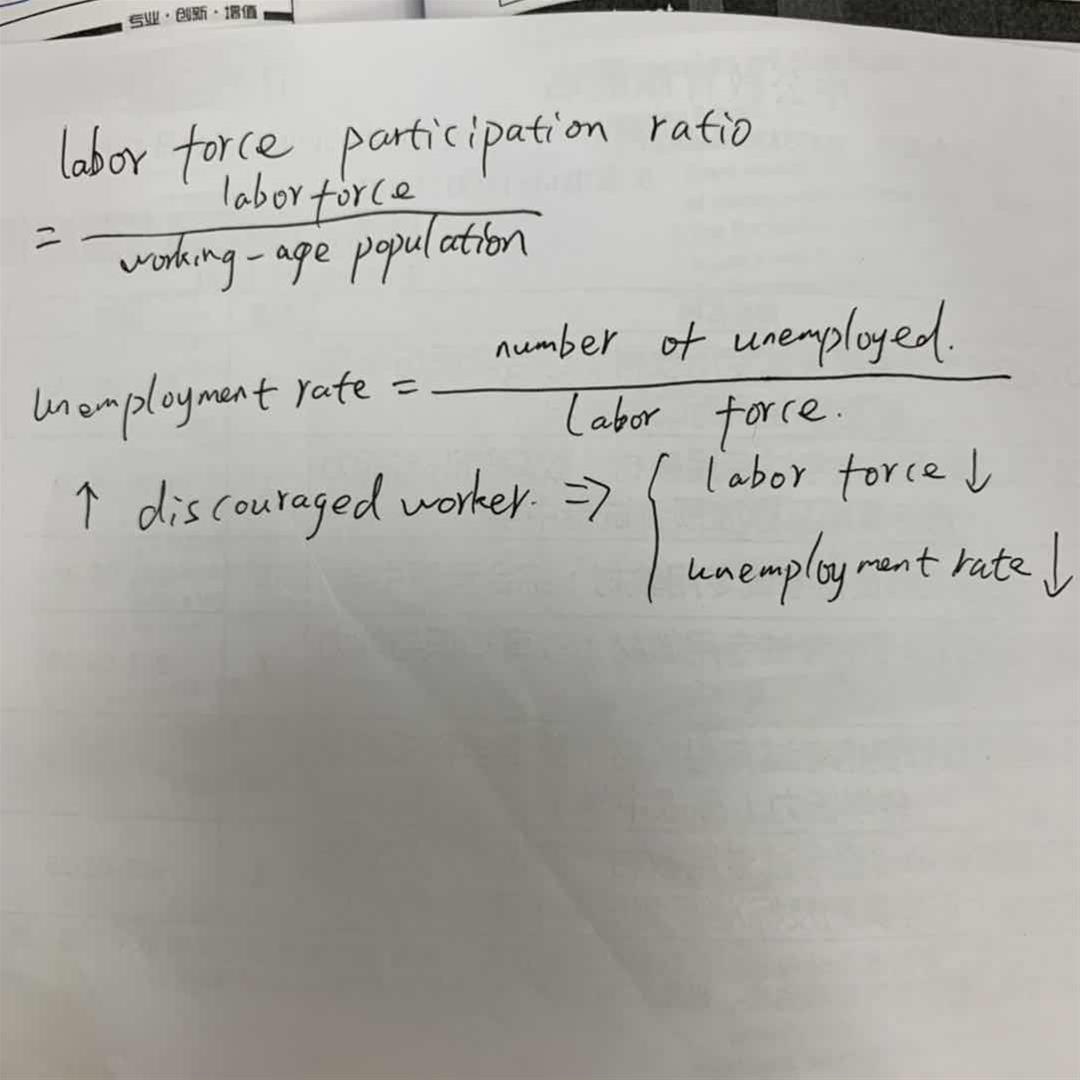 专业·创新·增值
labor force participation ratio
= labor force
working-age population
unemployment rate = number of unemployed.
labor force.
↑ discouraged worker. ⇒ { labor force ↓
unemployment rate ↓